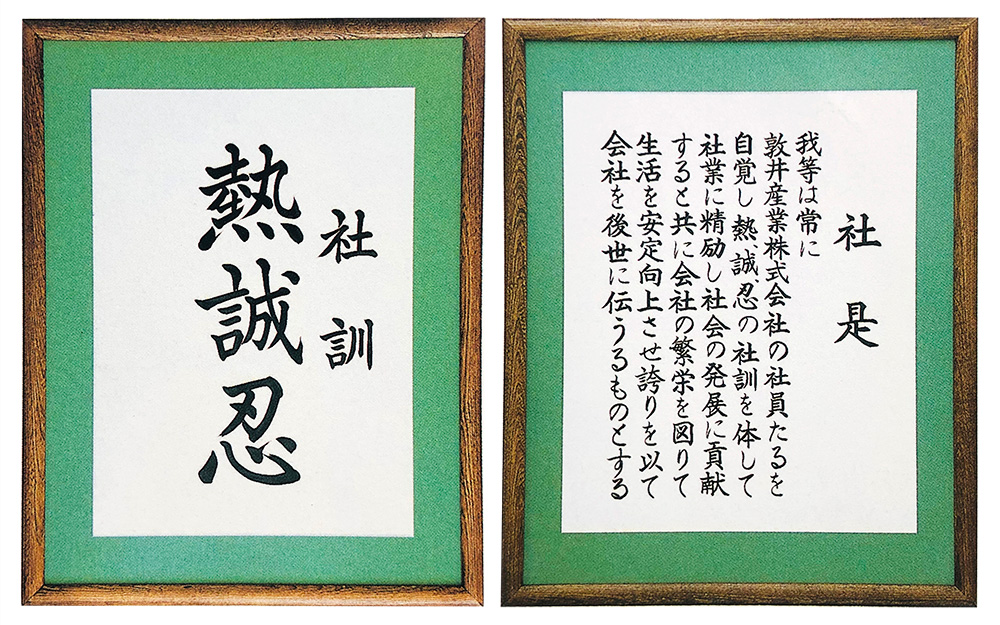 社訓
熱誠忍
社是
我等は常に
敦井産業株式会社の社員たるを
自覚し熱、誠、忍の社訓を体して
社業に精励し社会の発展に貢献
すると共に会社の繁栄を図りて
生活を安定向上させ誇りを以て
会社を後世に伝うるものとする